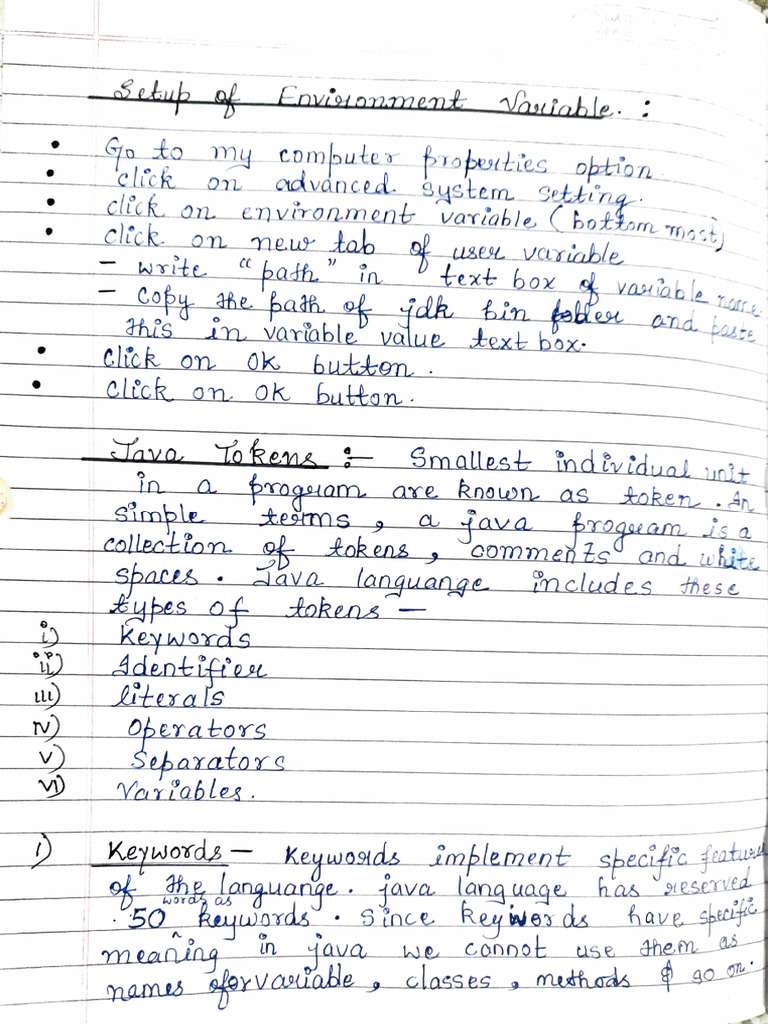 Setup of Environment Variable. :
• Go to my computer properties option.
• click on advanced system setting.
• click on environment variable (bottom most)
• click on new tab of user variable
– write "path" in text box of variable name
– copy the path of jdk bin folder and paste
this in variable value text box.
• click on OK button.
• click on OK button.
Java Tokens :– Smallest individual unit
in a program are known as token. In
simple terms, a java program is a
collection of tokens, comments and white
spaces. Java languange includes these
types of tokens –
i) Keywords
ii) Identifier
iii) literals
iv) Operators
v) Separators
vi) Variables.
1) Keywords – Keywords implement specific feature
of the languange. java language has reserved
words as
50 keywords. Since keywords have specific
meaning in java we connot use them as
names for variable, classes, methods & go on.